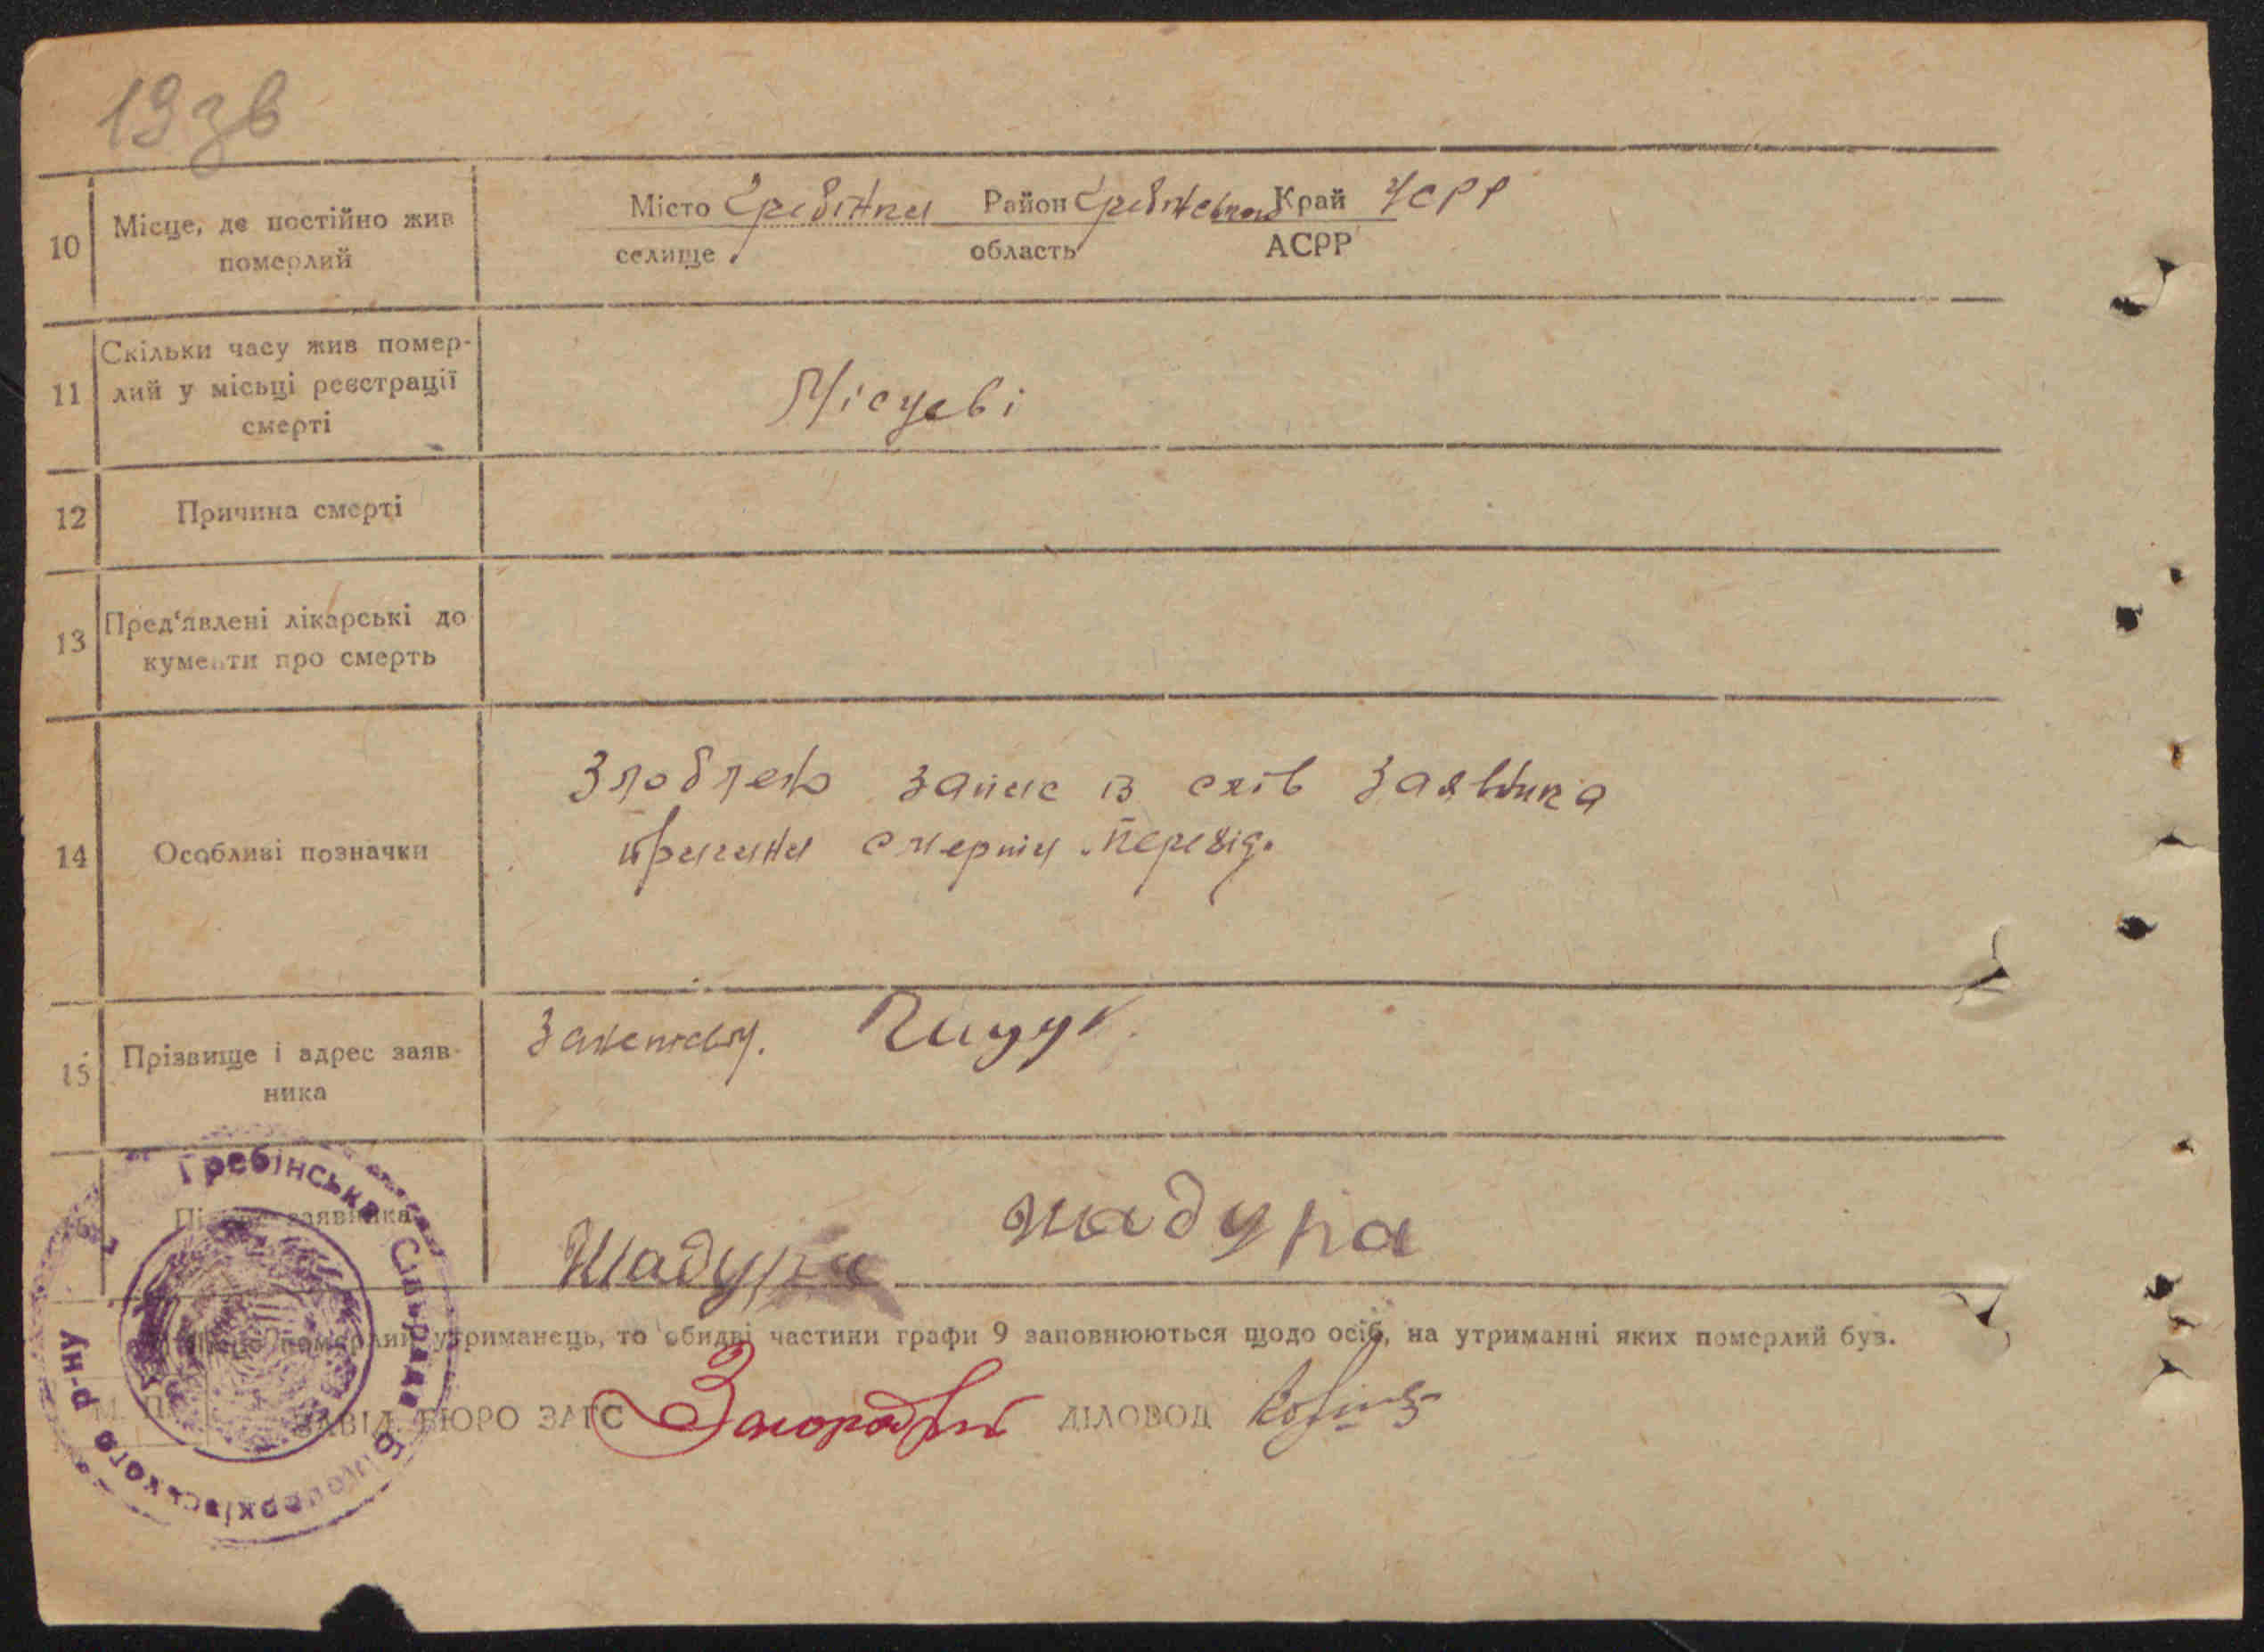 19зв
10 Місце, де постійно жив померлий
Місто Гребінки Район Гребінськом Край УСРР
селище область АСРР
11 Скільки часу жив помер-
лий у місьці реєстрації
смерті
Місцеві
12 Причина смерті
13 Пред‘явлені лікарські до
кументи про смерть
14 Особливі позначки
Зроблено запис із слів заявника
причини смерти
15 Прізвище і адрес заяв-
ника
16 Підпис заявника
Шадура Шадура
померлий утриманець, то обидві частини графи 9 заповнюються щодо осіб, на утриманні яких померлий був.
М. П. ЗАВІД. БЮРО ЗАГС ДІЛОВОД
Гребінська Сільрада Білоцерківського р-ну